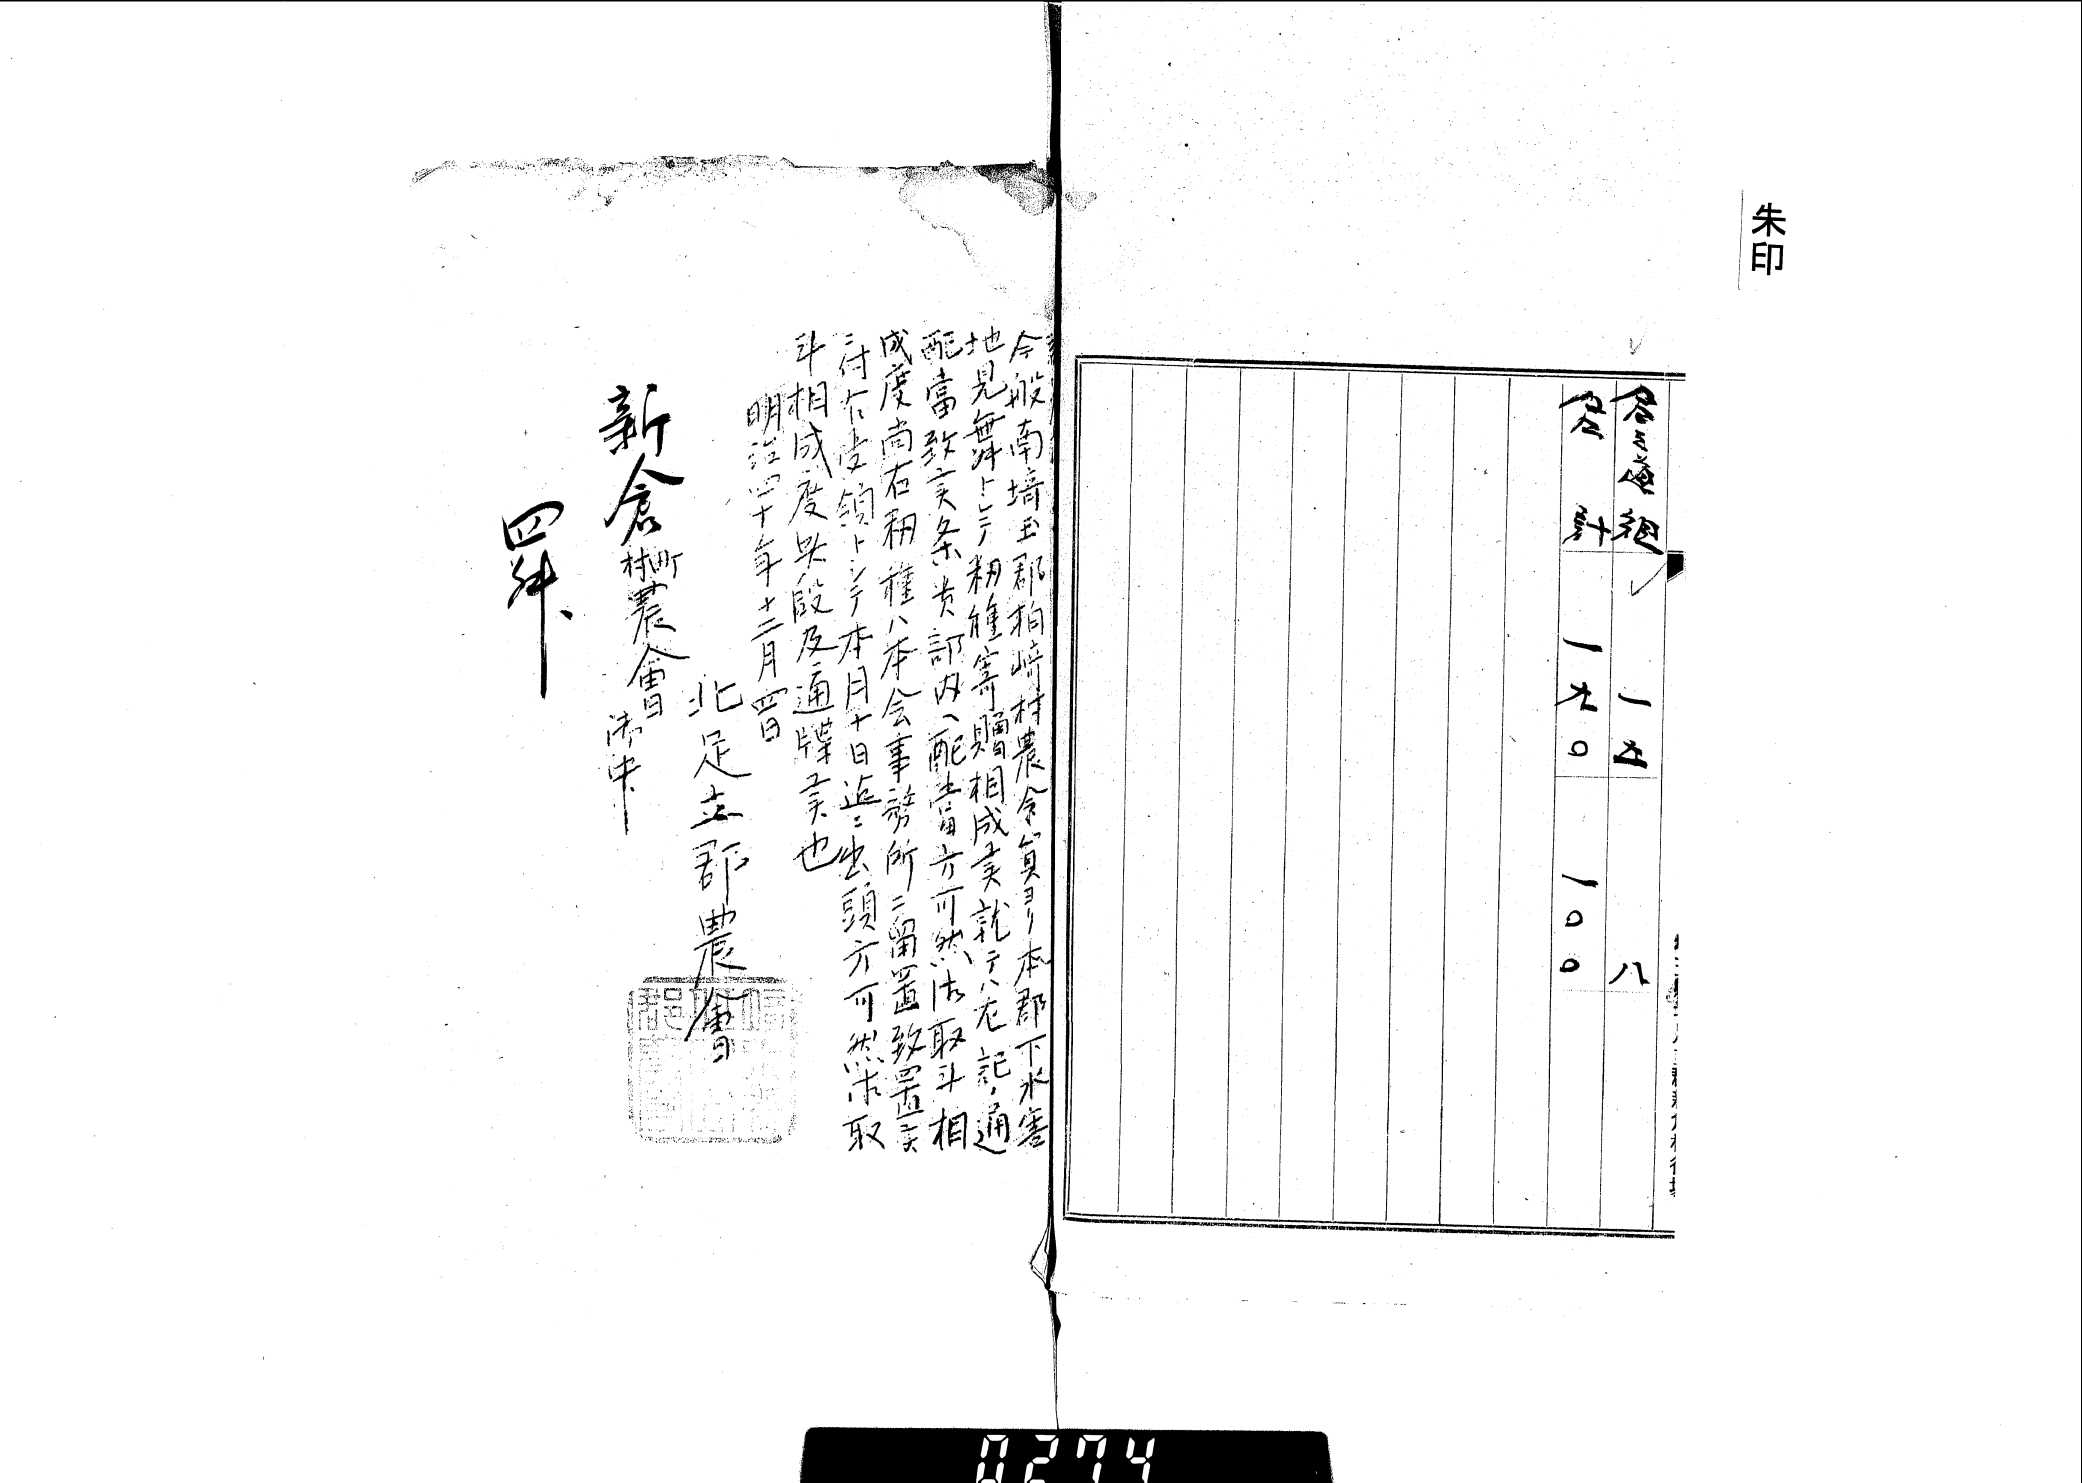 朱印
組 一五 八
合計 一九〇 一〇〇
今般南埼玉郡柏崎村農会員ヨリ本郡下水害
地見舞トシテ籾種寄贈相成候就テハ左記ノ通
配當致候条貴部内ヘ配當方可然御取斗相
成度尚右籾種ハ本会事務所ニ留置致置候
ニ付右受領トシテ本月十日迄ニ出頭方可然御取
斗相成度此段及通牒候也
明治四十年十二月四日
北足立郡農會
新倉町村農會御中
四升
0274